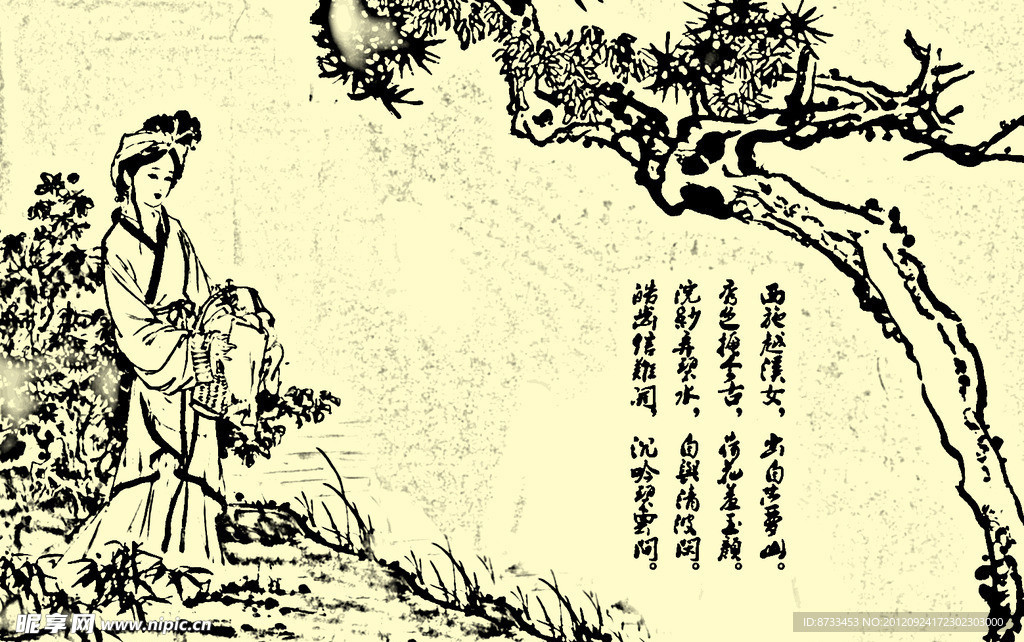 西施越溪女,出自苎蘿山。
秀色掩今古,荷花羞玉顏。
浣紗弄碧水,自與清波閑。
皓齒信難開,沉吟碧雲間。
昵享网 www.nipic.cn
ID:8733453 NO:20120924172302303000